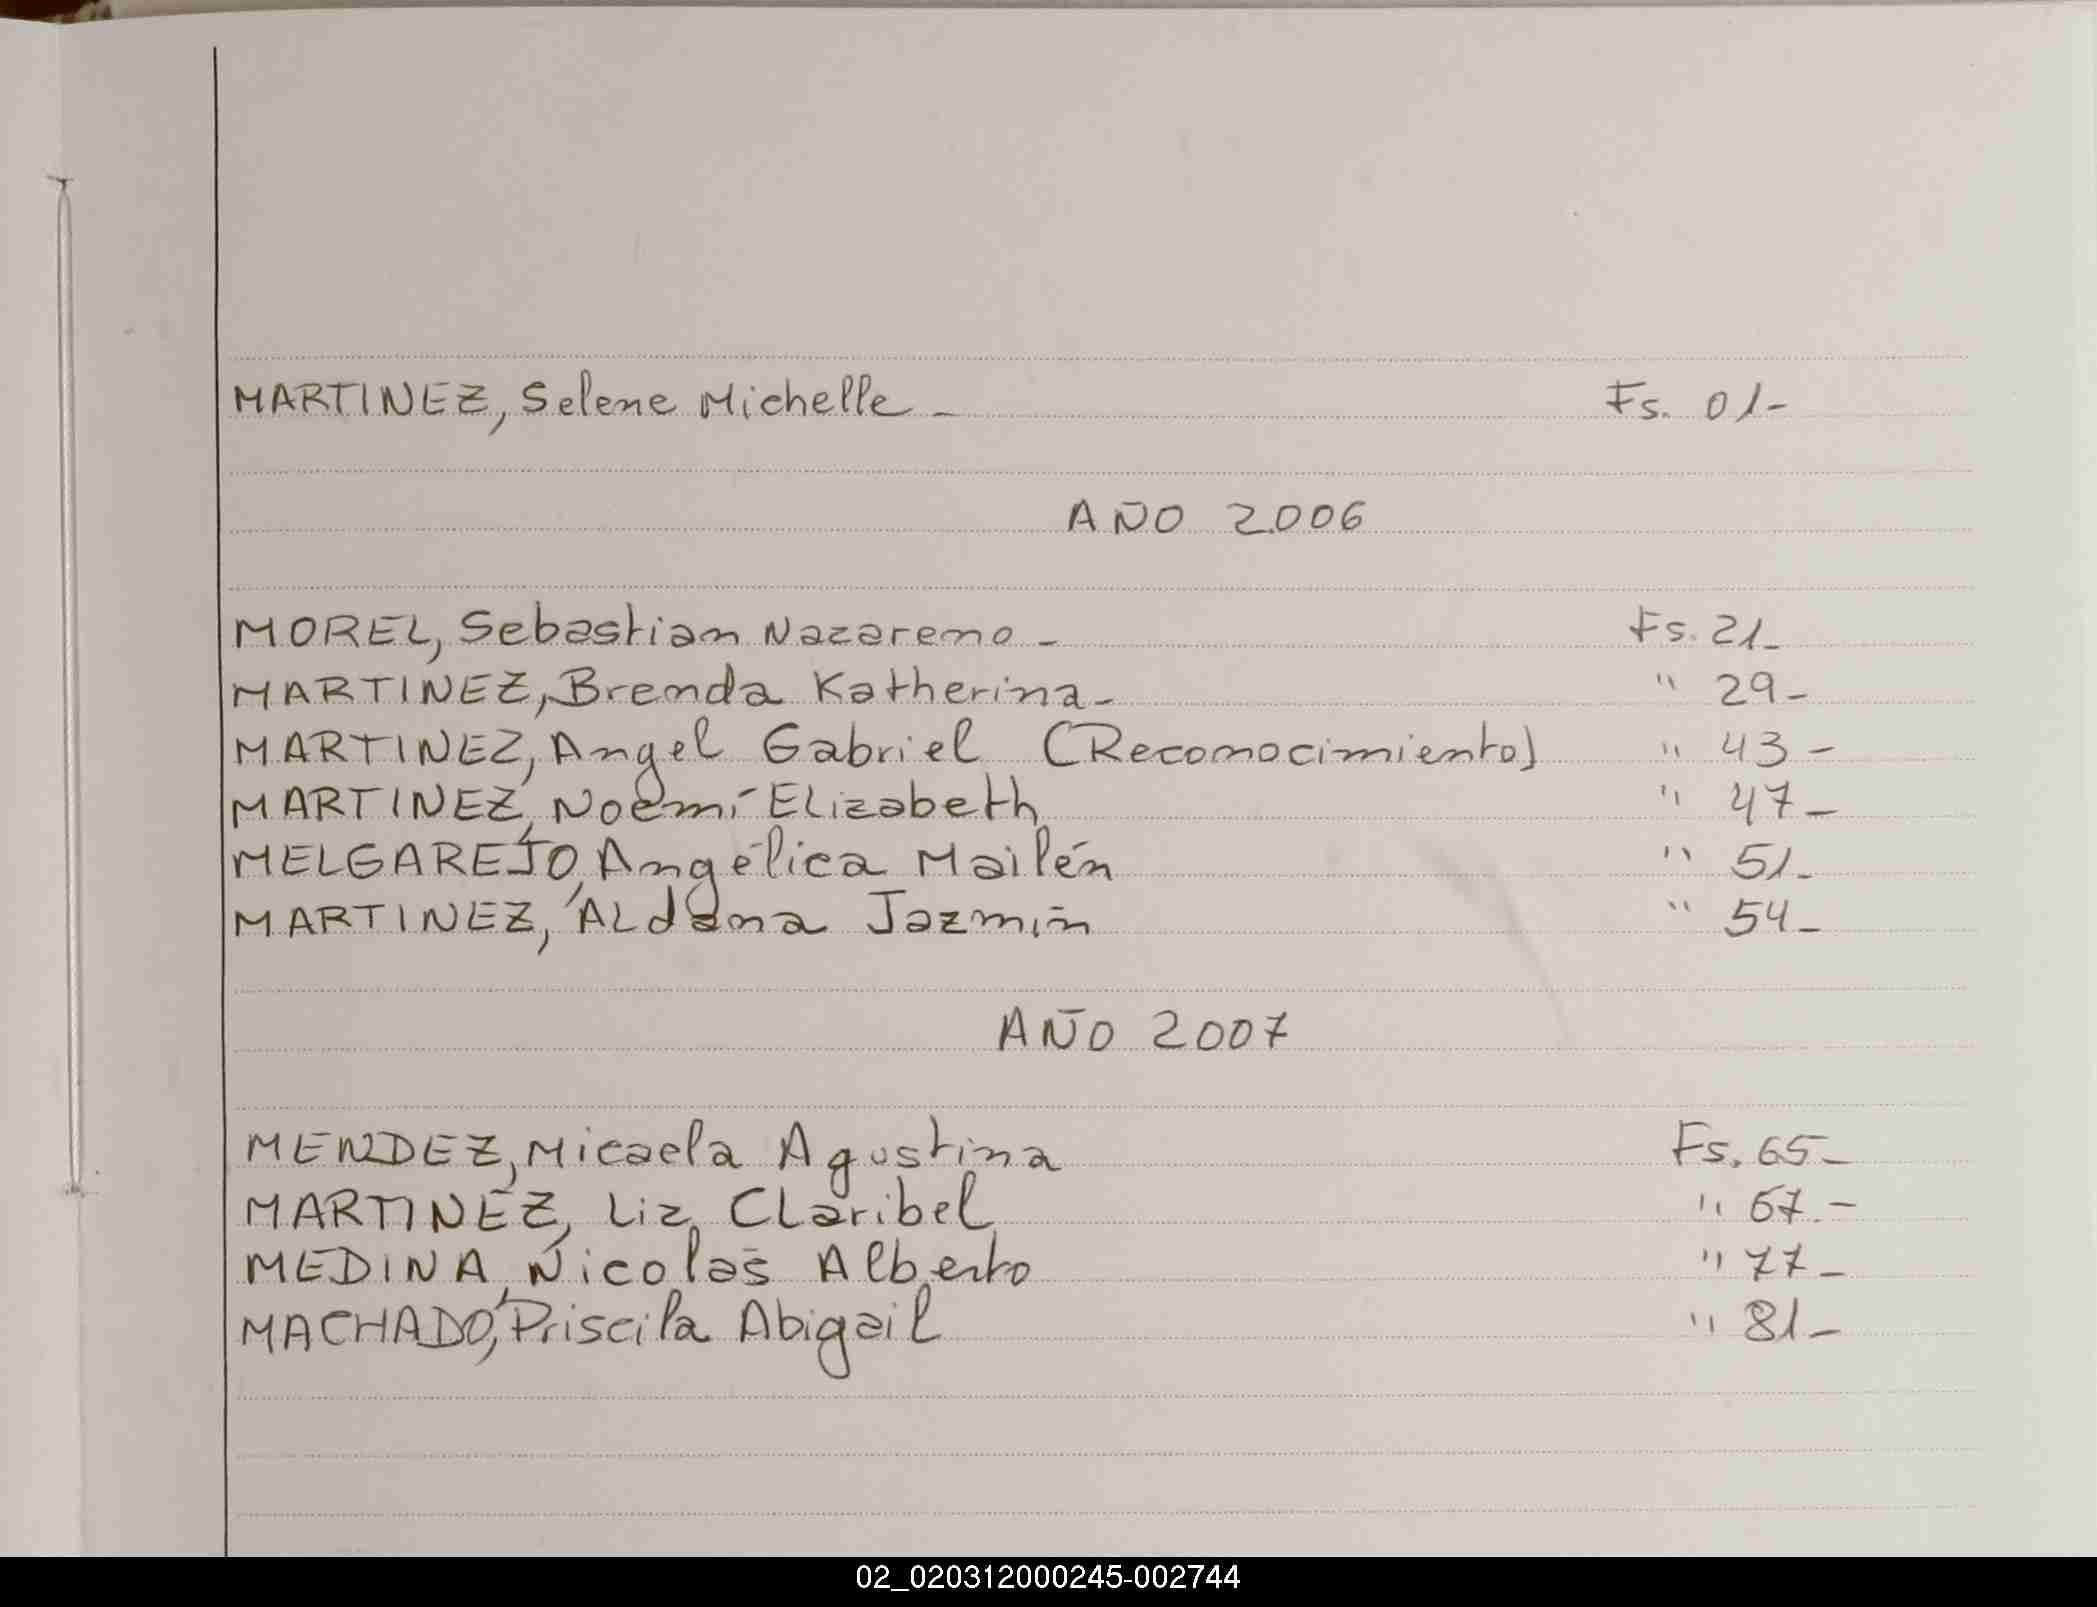 MARTINEZ, Selene Michelle - Fs. 01-
AÑO 2006
MOREL, Sebastian Nazareno - Fs. 21-
MARTINEZ, Brenda Katherina - " 29-
MARTINEZ, Angel Gabriel (Reconocimiento) " 43-
MARTINEZ, Noemí Elizabeth " 47-
MELGAREJO, Angélica Mailén " 51-
MARTINEZ, Aldana Jazmín " 54-
AÑO 2007
MENDEZ, Micaela Agustina Fs. 65-
MARTINEZ, Liz Claribel " 67.-
MEDINA, Nicolás Alberto " 77-
MACHADO, Priscila Abigail " 81-
02_020312000245-002744